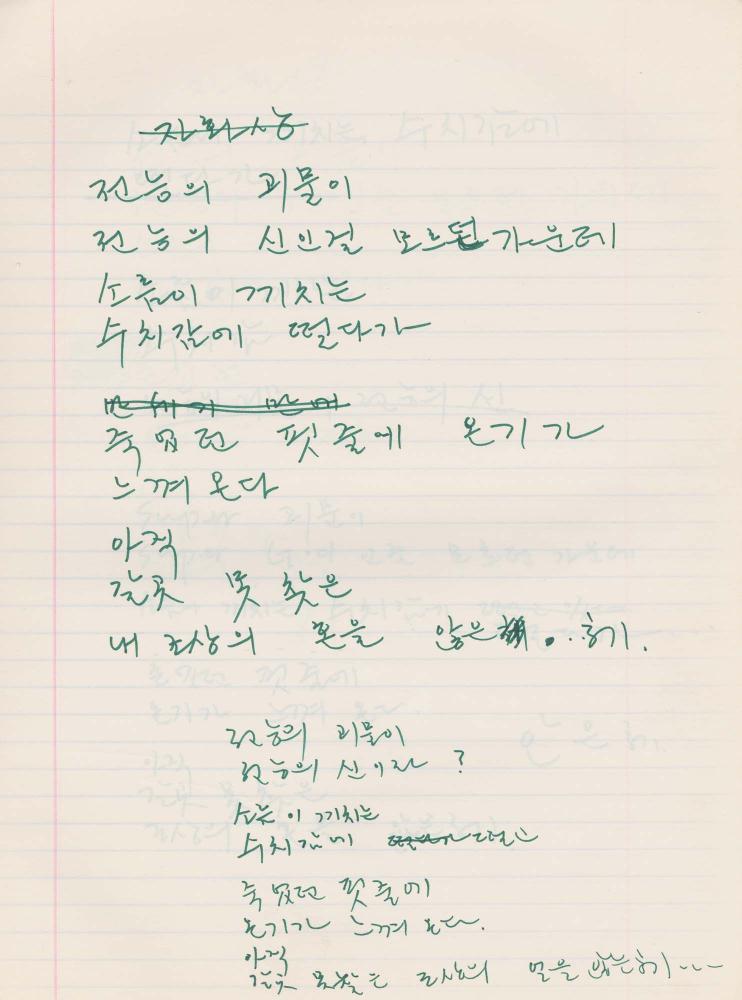 자화상
전능의 괴물이
전능의 신인걸 모르던 가운데
소름이 끼치는
수치감에 떨다가
죽었던 핏줄에 온기가
느껴 온다
아직
갈곳 못 찾은
내 조상의 혼을 않은 . . 하기.
전능의 괴물이
전능의 신이라 ?
소름이 끼치는
수치감에 떨던
죽었던 핏줄에
온기가 느껴 온다.
아직
갈곳 못찾는 조상의 얼을 않는하기...